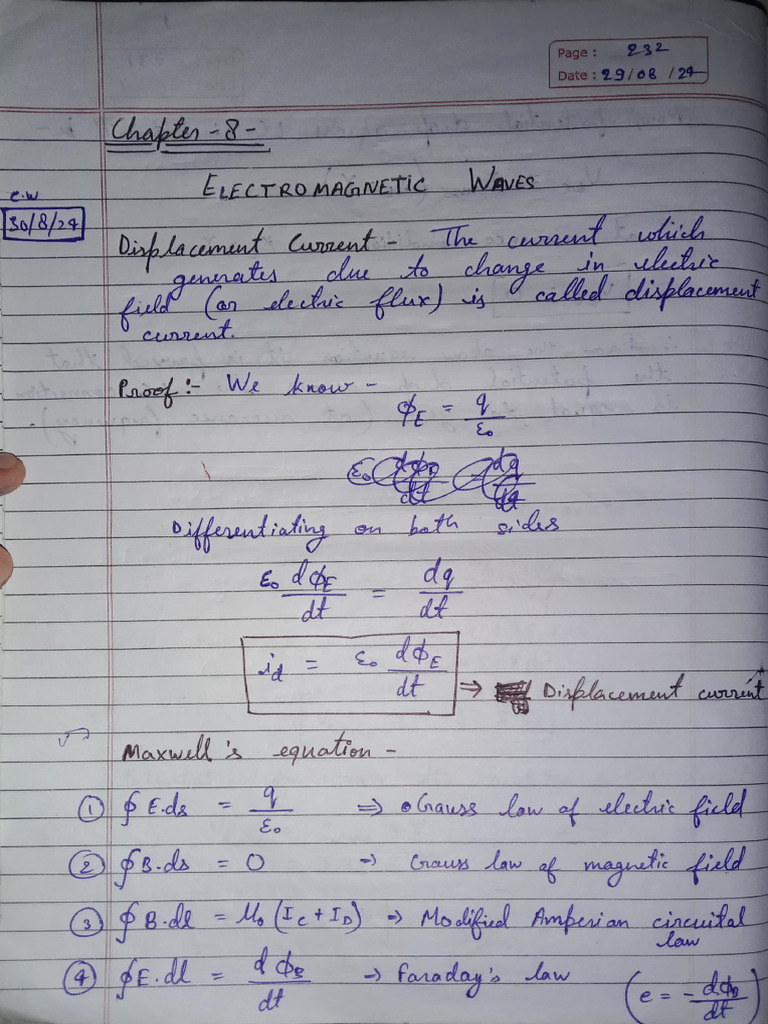 Page : 232
Date : 29/08/24
Chapter - 8 -
ELECTROMAGNETIC WAVES
C.W
30/8/24
Displacement Current - The current which
generates due to change in electric
field (or electric flux) is called displacement
current.
Proof :- We know -
ϕE = q/ε0
Differentiating on both sides
ε0 dϕE/dt = dq/dt
id = ε0 dϕE/dt ⇒ Displacement current
Maxwell's equation -
① ∮E.ds = q/ε0 ⇒ Gauss law of electric field
② ∮B.ds = 0 → Gauss law of magnetic field
③ ∮B.dl = μ0 (IC + ID) → Modified Amperian circuital
law
④ ∮E.dl = dϕB/dt → Faraday's law (e = -dϕB/dt)